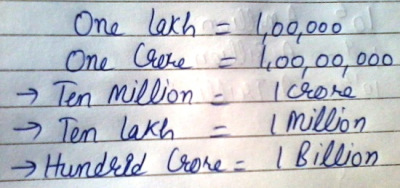 One lakh = 1,00,000
One Crore = 1,00,00,000
→ Ten Million = 1 Crore
→ Ten lakh = 1 Million
→ Hundrid Crore = 1 Billion